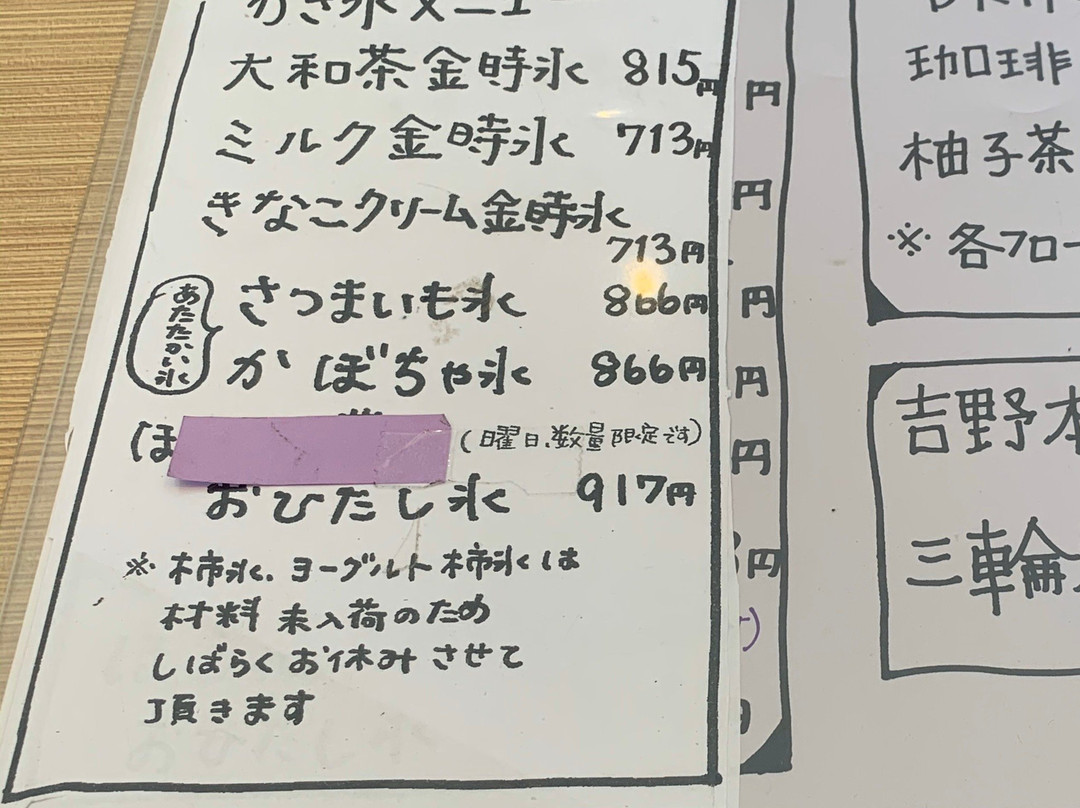 かき氷メニュー
大和茶金時氷 815円
ミルク金時氷 713円
きなこクリーム金時氷
713円
あたたかい氷
さつまいも氷 866円
かぼちゃ氷 866円
ほ
(日曜日、数量限定です)
おひたし氷 917円
※柿氷、ヨーグルト柿氷は
材料未入荷のため
しばらくお休みさせて
頂きます
円
円
円
円
円
円
珈琲
柚子茶
※各フロー
吉野本
三輪